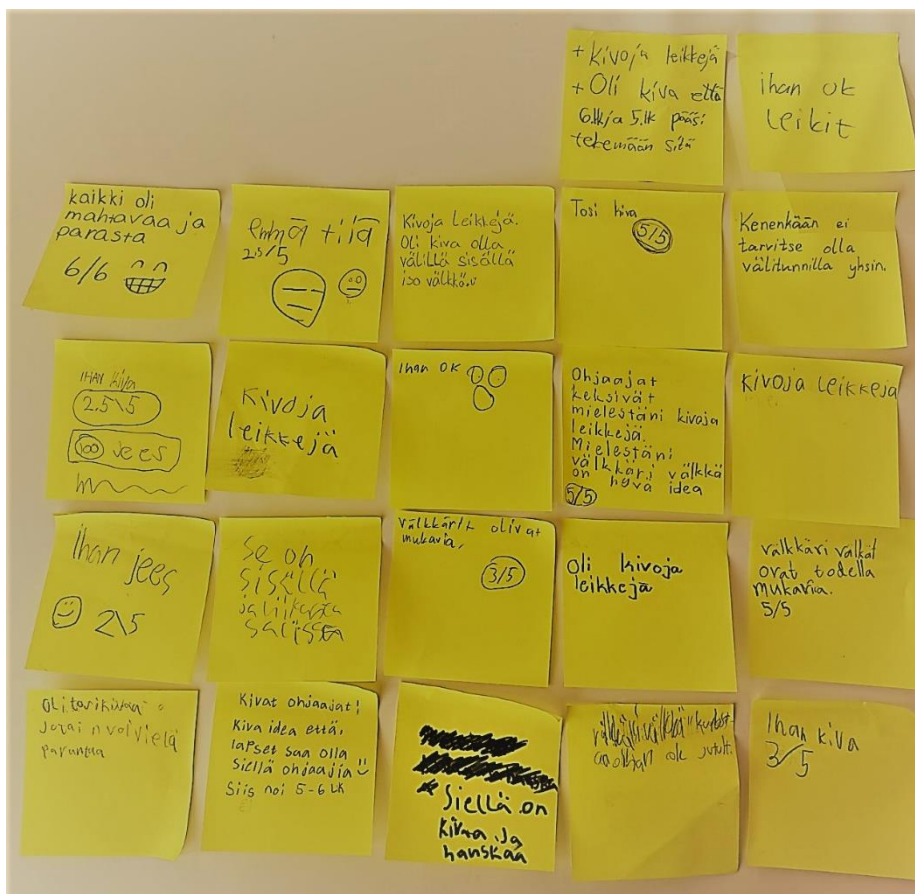 + Kivoja leikkejä
+ Oli kiva että
6.lk ja 5.lk pääsi
tekemään sitä
ihan ok
leikit
kaikki oli
mahtavaa ja
parasta
6/6
emmä tiiä
2.5/5
Kivoja Leikkejä.
Oli kiva olla
välillä sisällä
iso välkkä.
Tosi kiva
5/5
Kenenkään ei
tarvitse olla
välitunnilla yhsin.
IHAN Kiva
2.5\5
100 jees
Kivoja
leikkejä
Ihan OK
Ohjaajat
keksivät
mielestäni kivoja
leikkejä.
Mielestäni
välkkäri välkkä
on hyvä idea
5/5
Kivoja Leikkejä
Ihan jees
2\5
Se on
sisällä
ja liikunta
salissa
välkkärit olivat
mukavia.
3/5
Oli kivoja
leikkejä
välkkäri välkät
ovat todella
mukavia.
5/5
Oli tosi kivaa
voi vielä
parantaa
Kivat ohjaajat!
Kiva idea että,
lapset saa olla
siellä ohjaajia
Siis noi 5-6 LK
Siellä on
kivaa ja
hauskaa
ok jutut.
Ihan kiva
3/5